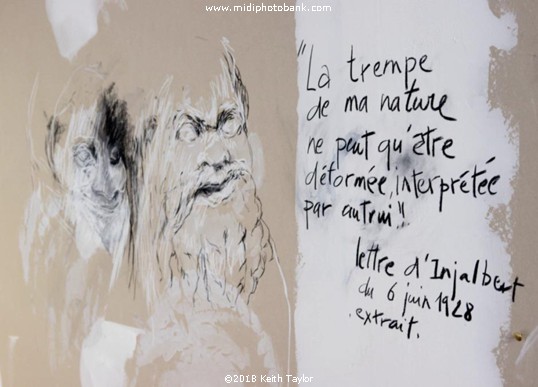 www.midiphotobank.com
"La trempe
de ma nature
ne peut qu'être
déformée, interprétée
par autrui".
lettre d'Injalbert
du 6 juin 1928
extrait.
©2018 Keith Taylor